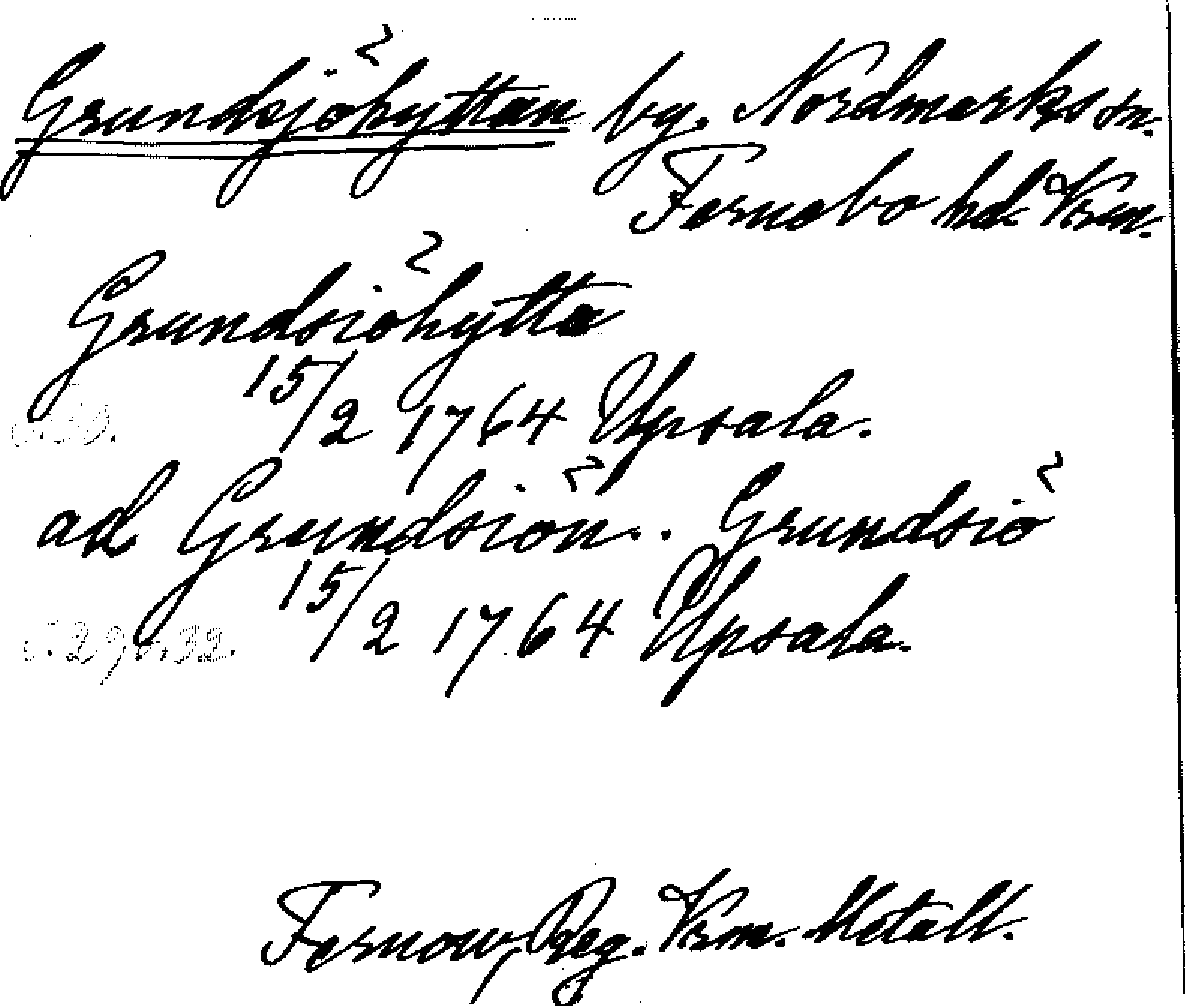 Grundsjöhyttan bg. Nordmarks sn.
Fernebo hd. Vrm.
Grundsiöhytta
15/2 1764 Upsala.
s. 30.
ad Grundsiön.. Grundsiö
15/2 1764 Upsala.
Fernow, Reg. Vrm. Metall.